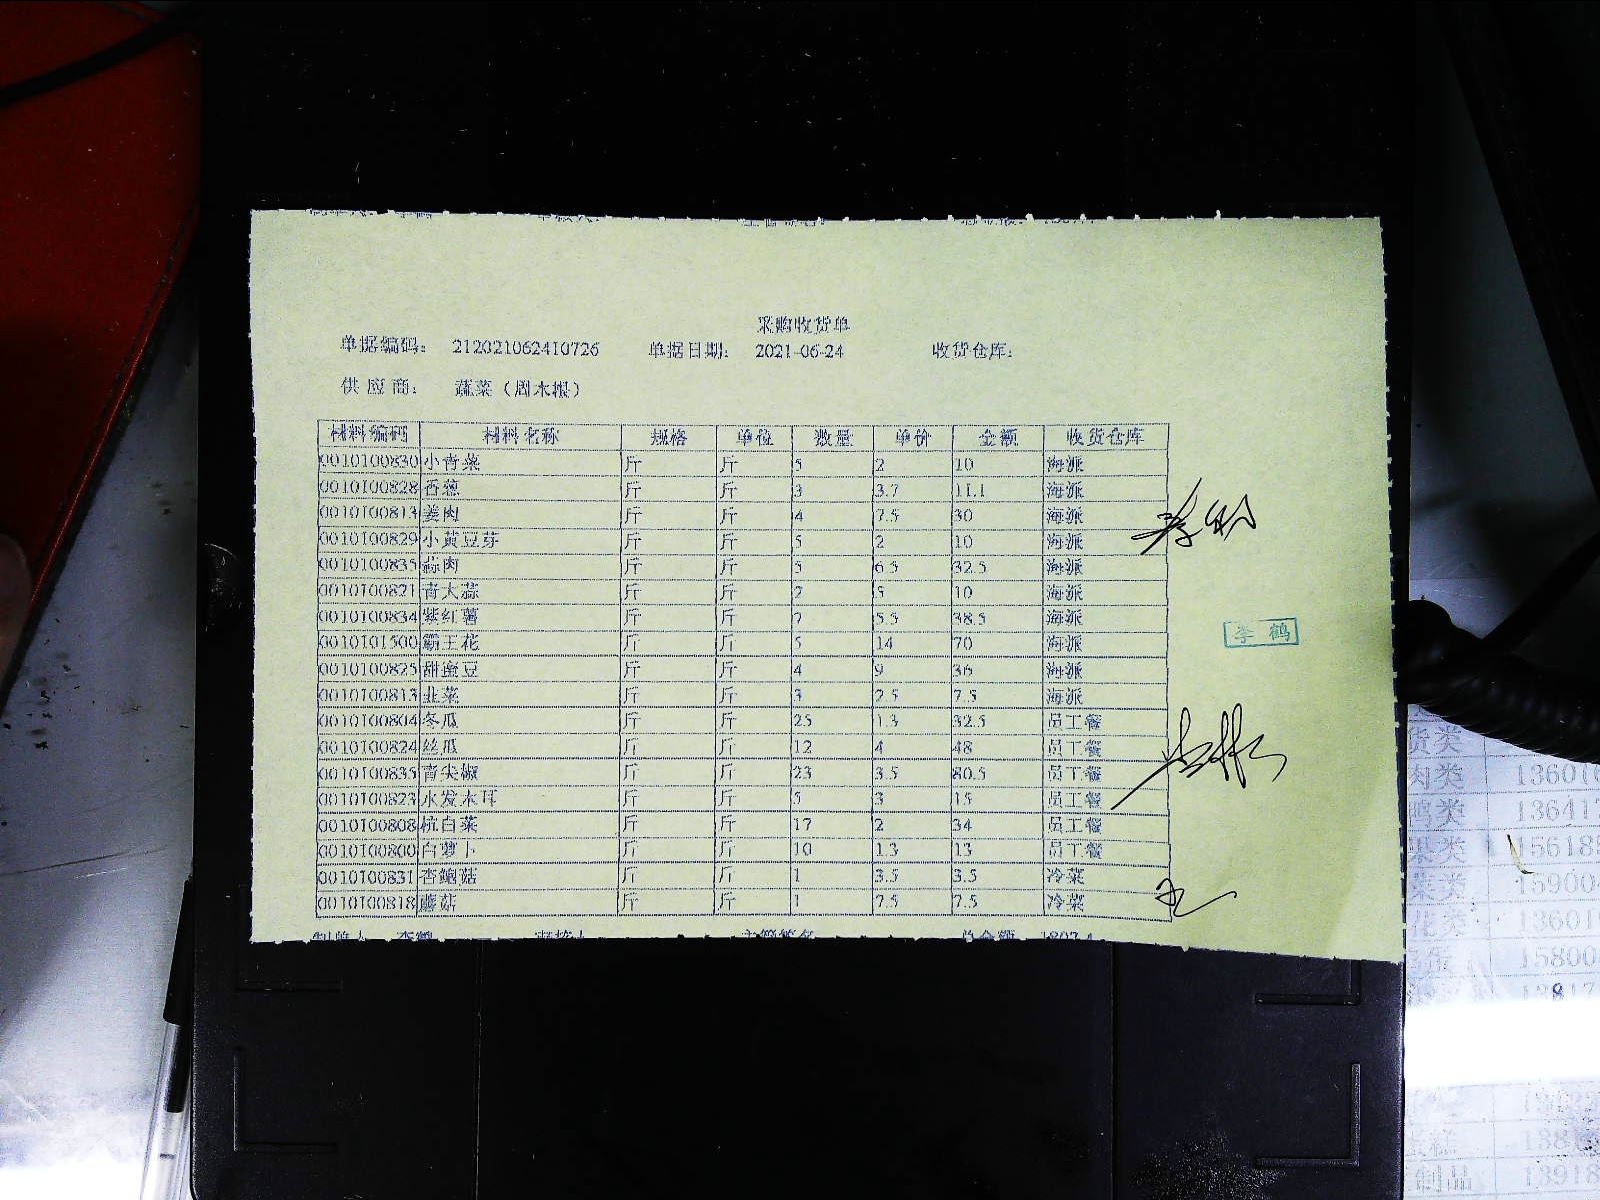 采购收货单
单据编码： 212021062410726 单据日期： 2021-06-24 收货仓库：
供 应 商： 蔬菜（周木根）
材料编码 材料名称 规格 单位 数量 单价 金额 收货仓库
0010100830 小青菜 斤 斤 5 2 10 海派
0010100828 香葱 斤 斤 3 3.7 11.1 海派
0010100813 姜肉 斤 斤 4 7.5 30 海派
0010100829 小黄豆芽 斤 斤 5 2 10 海派
0010100835 蒜肉 斤 斤 5 6.5 32.5 海派
0010100821 青大蒜 斤 斤 2 5 10 海派
0010100834 紫红薯 斤 斤 7 5.5 38.5 海派
0010101500 霸王花 斤 斤 5 14 70 海派
0010100825 甜蜜豆 斤 斤 4 9 36 海派
0010100813 韭菜 斤 斤 3 2.5 7.5 海派
0010100804 冬瓜 斤 斤 25 1.3 32.5 员工餐
0010100824 丝瓜 斤 斤 12 4 48 员工餐
0010100835 青尖椒 斤 斤 23 3.5 80.5 员工餐
0010100823 水发木耳 斤 斤 5 3 15 员工餐
0010100808 杭白菜 斤 斤 17 2 34 员工餐
0010100800 白萝卜 斤 斤 10 1.3 13 员工餐
0010100831 杏鲍菇 斤 斤 1 3.5 3.5 冷菜
0010100818 蘑菇 斤 斤 1 7.5 7.5 冷菜
李 鹤
制单人 李鹤 审核人 主管签名 总金额
货类
肉类 13601
鸭类 13641
果类 15618
菜类 15900
花类 13601
15800
制品 13918